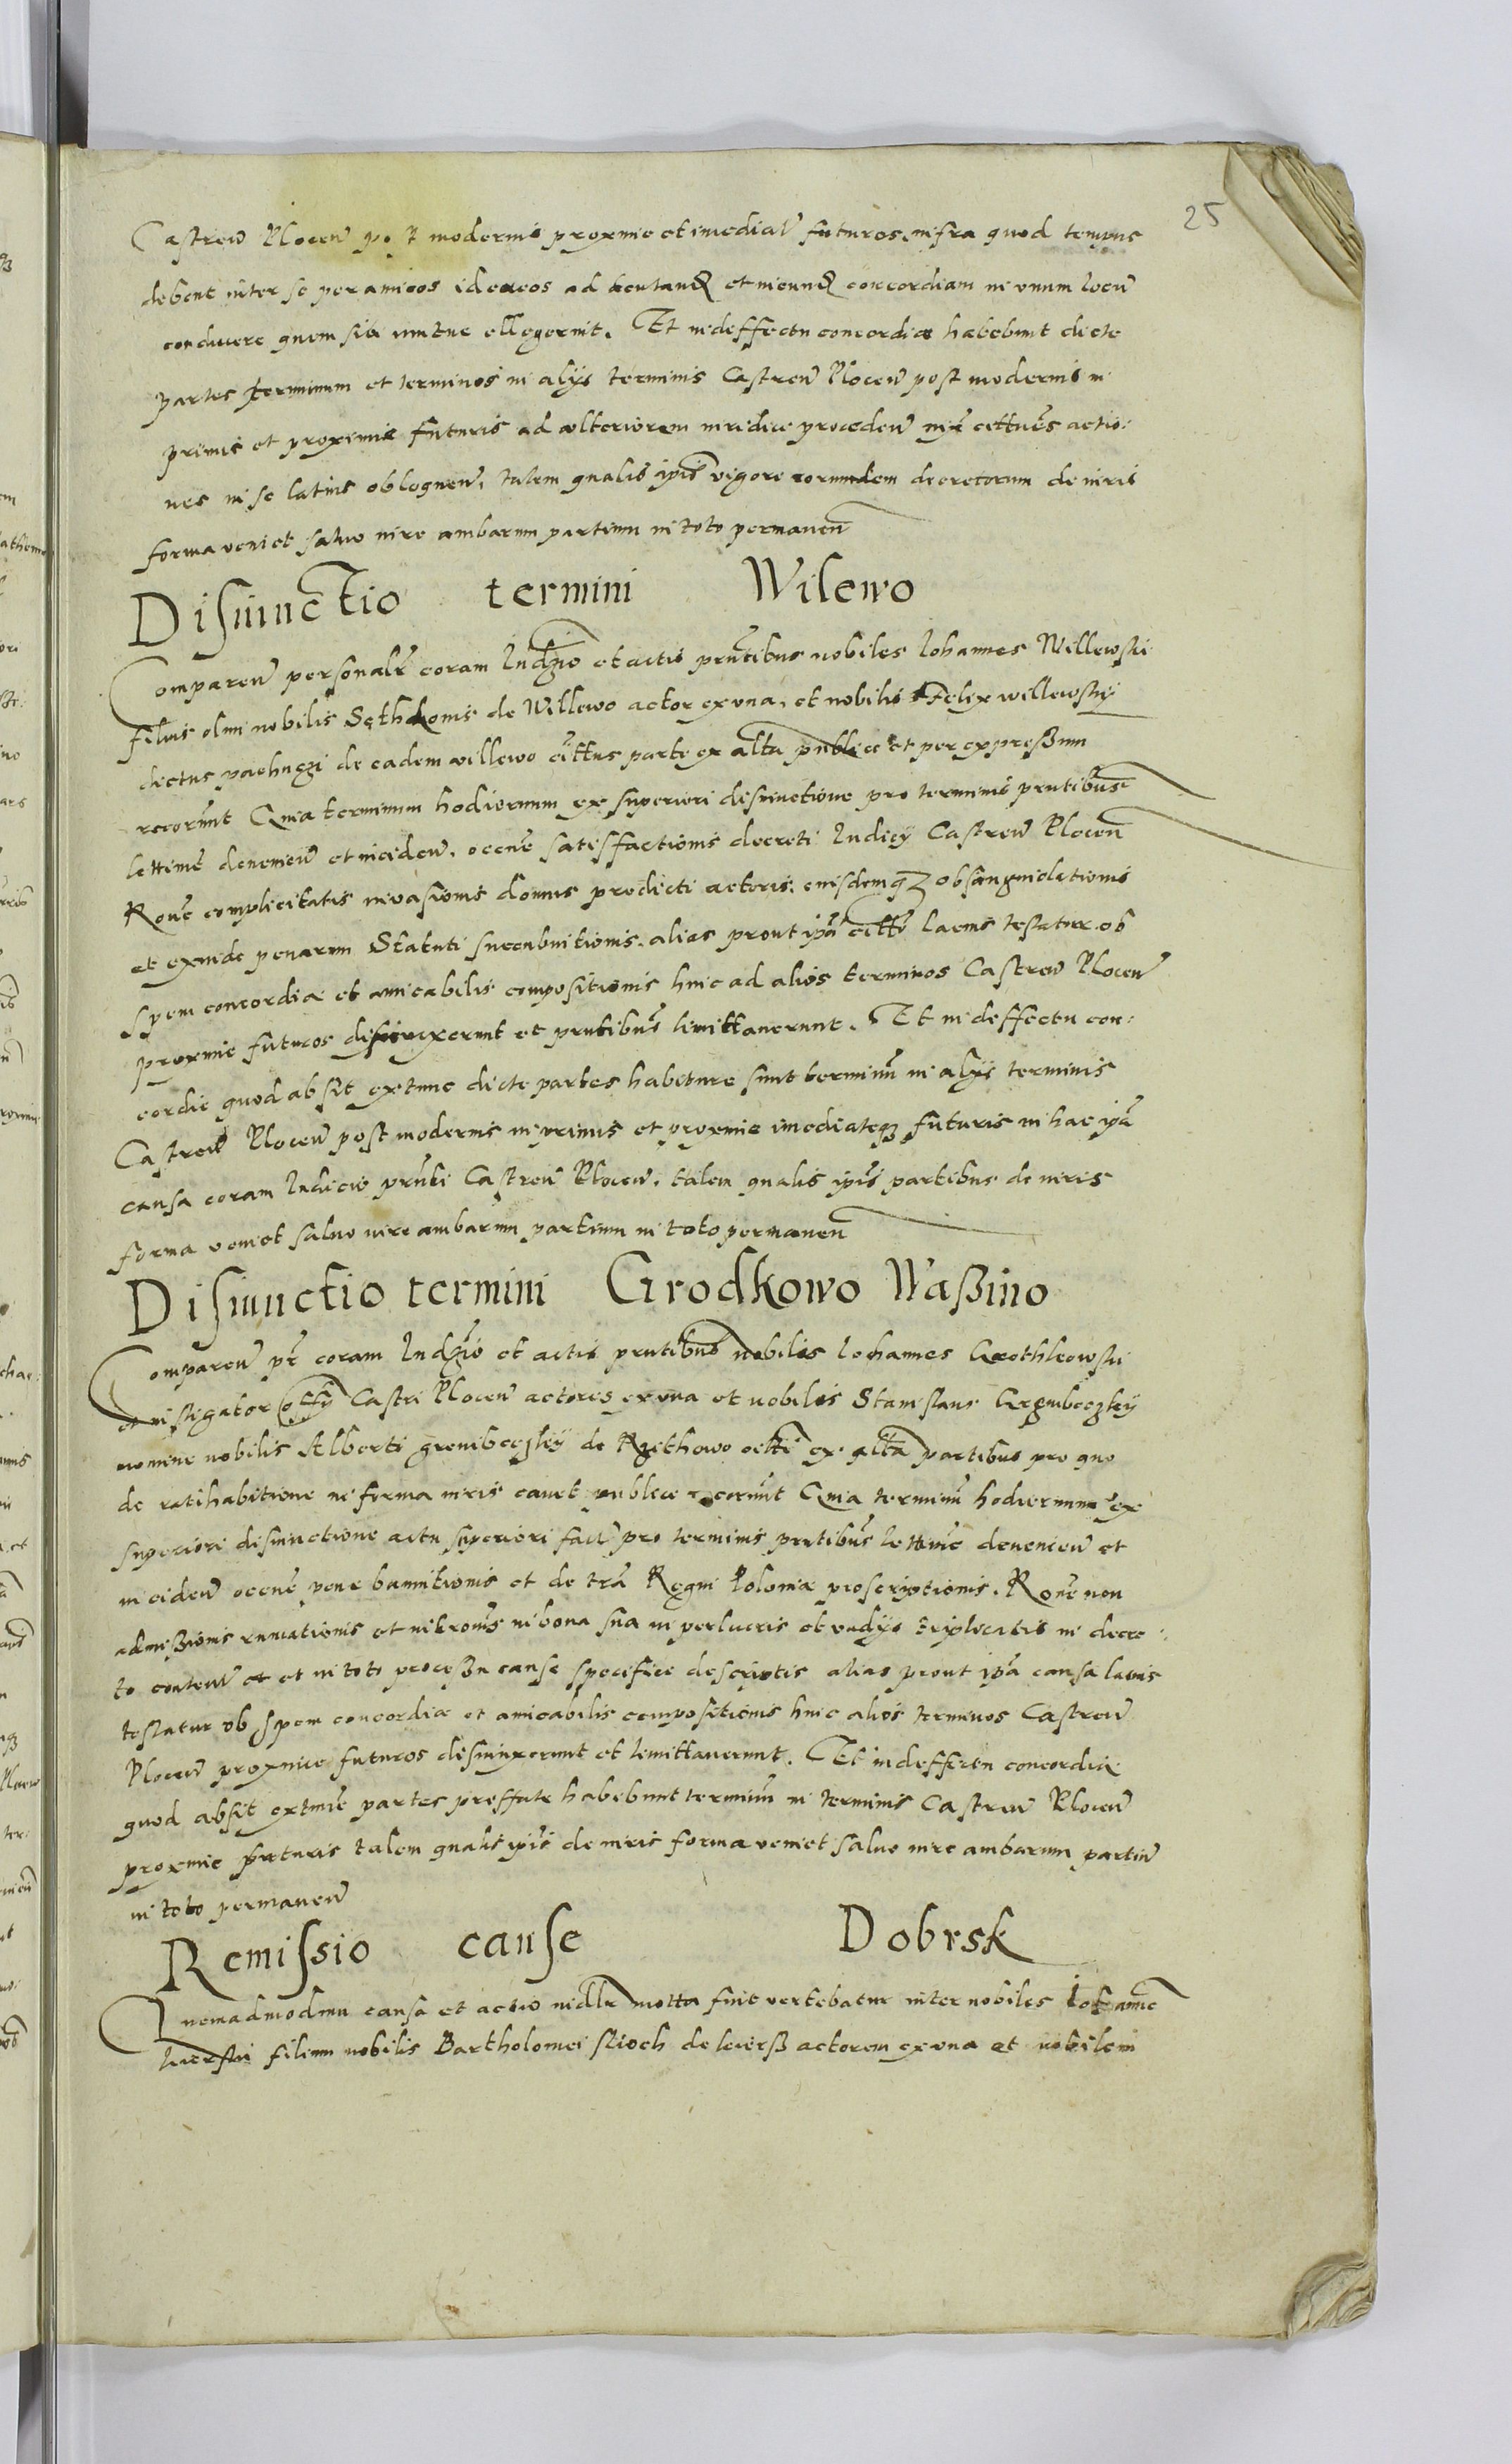 25
Castren Plocen post modernis proxime et imediate futuros infra quod tempus
debent inter se per amicos idoneos ad tentand et ineund concordiam in unum locum
conducere quem sibi ellegerint. Et in deffectu concordiæ habebunt dicte
partes terminum et terminos in alys terminis Castren Plocen post modernis in
primis et proximis futuris ad ulteriorem iuridice proceden actio:
nes in se latius obloquen, talem qualis ipis vigore eorumdem decretorum de iuris
forma veniet salvo iure ambarum partium in toto permanen
Disiunctio termini Wilewo
Comparen personalr coram Iudicio et actis pntibus nobiles Iohannes Willewski
filius olim nobilis de Willewo actor ex una, et nobilis Felix willewsky
dictus de eadem willewo cittus parte ex alta publice et per expressum
recorunt Quia terminum hodiernum ex superiori disiunctione pro terminis pntibus
lettime devenien et inciden, occne satisfactionis decreti Iudicy Castren Plocen
Rone complicitatis invasionis domus predicti actoris, eiusdemq obsanguiolationis
et exinde penarum Statuti succubuitionis, alias prout ipa laeius testatur, ob
spem concordiæ et amicabilis compositionis hinc ad alios terminos Castren Plocen
proxime futuros disiunxerunt et pntibus limittaverunt. Et in deffectu con:
cordie quod absit extunc dicte partes habiture sunt terminum in alys terminis
Castren Plocen post modernis in primis et proxime imediateq futuris in hac ipa
causa coram Iudicio pnti Castren Plocen, talem qualis ipis partibus de iuris
forma veniet salvo iure ambarum partium in toto permanen
Disiunctio termini Grodkowo Waßino
Comparen pr coram Iudicio et actis pntibus nobiles Iohannes Grothkowski
et instigator offy Castri Plocen actores ex una et nobiles Stanislaus
nomine nobilis Alberti de citti ex alta partibus pro quo
de ratihabitione in forma iuris cavet publice recorunt Quia terminum hodiernum ex
superiori disiunctione actu superiori fact pro terminis pntibus lettime devenien et
inciden occne pene bannitionis et de tra Regni Poloniæ proscriptionis. Rone non
admißionis rumationis et intronis in bona sua in perlucris et vadys triplicatis in decre:
to conten et et in toto proceßu cause specifice descriptis alias prout ipa causa latius
testatur ob spem concordiæ et amicabilis compositionis hinc alios terminos Castren
Plocen proxime futuros disiunxerunt et limittaverunt. Et in deffectu concordiæ
quod absit extunc partes preffate habebunt terminum in terminis Castren Plocen
proxime futuris talem qualis ipis de iuris forma veniet salvo iure ambarum partium
in toto permanen
Remissio cause Dobrsk
Quemadmodum causa et actio motta fuit vertebatur inter nobiles Iohannem
filium nobilis Bartholomei de actorem ex una et nobilem